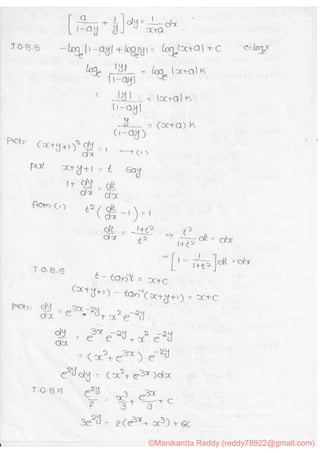 [a/(1-ay) + 1/y] dy = 1/(x+a) dx
I.O.B.S -log_e |1-ay| + log_e |y| = log_e |x+a| + c c = log_e k
log_e |y|/|1-ay| = log_e |x+a| k
∴ |y|/|1-ay| = |x+a| k
y/(1-ay) = (x+a) k
prob: (x+y+1)² dy/dx = 1 → (1)
put x+y+1 = t say
1 + dy/dx = dt/dx
from (1) t² (dt/dx - 1) = 1
dt/dx = (1+t²)/t² ⇒ t²/(1+t²) dt = dx
⇒ [1 - 1/(1+t²)] dt = dx
I.O.B.S t - tan⁻¹t = x+c
(x+y+1) - tan⁻¹(x+y+1) = x+c
prob: dy/dx = e^(3x-2y) + x² e^(-2y)
dy/dx = e^(3x) · e^(-2y) + x² · e^(-2y)
= (x² + e^(3x)) e^(-2y)
e^(2y) dy = (x² + e^(3x)) dx
I.O.B.S e^(2y)/2 = x³/3 + e^(3x)/3 + c
3e^(2y) = 2(e^(3x) + x³) + 6c
©Manikantta Reddy (reddy78922@gmail.com)